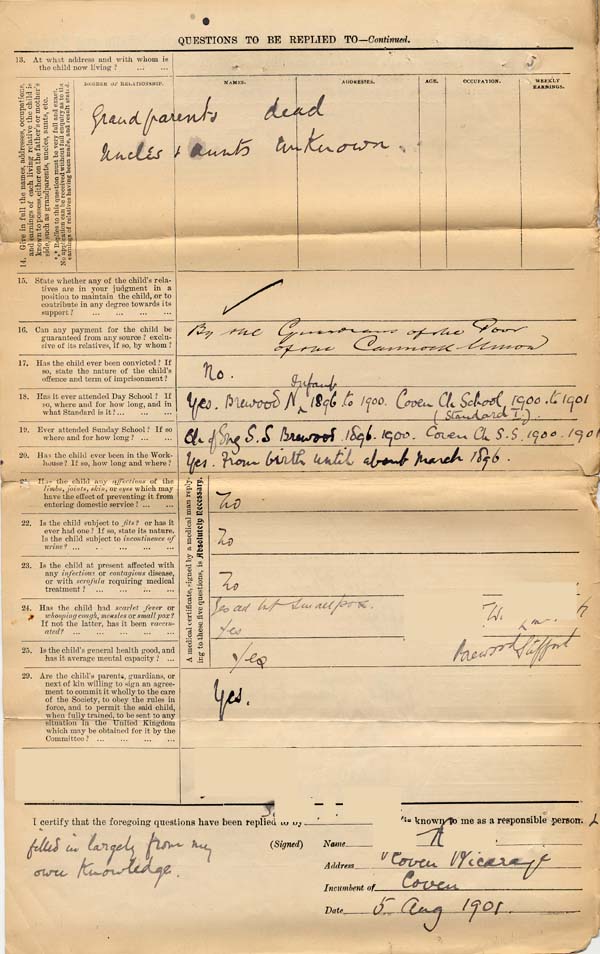 QUESTIONS TO BE REPLIED TO—Continued.
13. At what address and with whom is
the child now living? ... ...
14. Give in full the names, addresses, occupations,
and earnings of each living relative the child is
known to possess, either on the father's or mother's
side, such as grandparents, uncles, aunts, etc.
*** Replies to this question must be very full and exact.
No application can be received without full enquiry as to the
earnings of relatives having been made, and result stated.
DEGREE OF RELATIONSHIP. NAMES. ADDRESSES. AGE. OCCUPATION. WEEKLY
EARNINGS.
Grandparents dead
Uncles & aunts unknown.
15. State whether any of the child's rela-
tives are in your judgment in a
position to maintain the child, or to
contribute in any degree towards its
support? ... ... ...
16. Can any payment for the child be
guaranteed from any source? exclu-
sive of its relatives, if so, by whom?
By the Guardians of the Poor
of the Cannock Union
17. Has the child ever been convicted? If
so, state the nature of the child's
offence and term of imprisonment?
No.
18. Has it ever attended Day School? If
so, where and for how long, and in
what Standard is it? ... ...
Infant
Yes. Brewood N 1896 to 1900. Coven Ch School 1900. to 1901
(Standard I.)
19. Ever attended Sunday School? If so
where and for how long? ... ...
Ch of Eng S.S Brewood. 1896. 1900. Coven Ch S.S. 1900. 1901
20. Has the child ever been in the Work-
house? If so, how long and where?
Yes. From birth until about March 1896.
A medical certificate, signed by a medical man reply-
ing to these five questions, is Absolutely Necessary.
21. Has the child any affections of the
limbs, joints, skin, or eyes which may
have the effect of preventing it from
entering domestic service? ... ...
No
22. Is the child subject to fits? or has it
ever had one? If so, state its nature.
Is the child subject to incontinence of
urine? ... ... ... ...
No
23. Is the child at present affected with
any infectious or contagious disease,
or with scrofula requiring medical
treatment? ... ... ...
No
24. Has the child had scarlet fever or
whooping cough, measles or small pox?
If not the latter, has it been vaccin-
ated? ... ... ... ...
Yes all but smallpox.
Yes
25. Is the child's general health good, and
has it average mental capacity? ...
Yes
Brewood Stafford
29. Are the child's parents, guardians, or
next of kin willing to sign an agree-
ment to commit it wholly to the care
of the Society, to obey the rules in
force, and to permit the said child,
when fully trained, to be sent to any
situation in the United Kingdom
which may be obtained for it by the
Committee? ... ... ... ...
Yes.
I certify that the foregoing questions have been replied to by is known to me as a responsible person.
filled in largely from my
own knowledge.
(Signed) Name
Address Coven Vicarage
Incumbent of Coven
Date 5 Aug 1901.